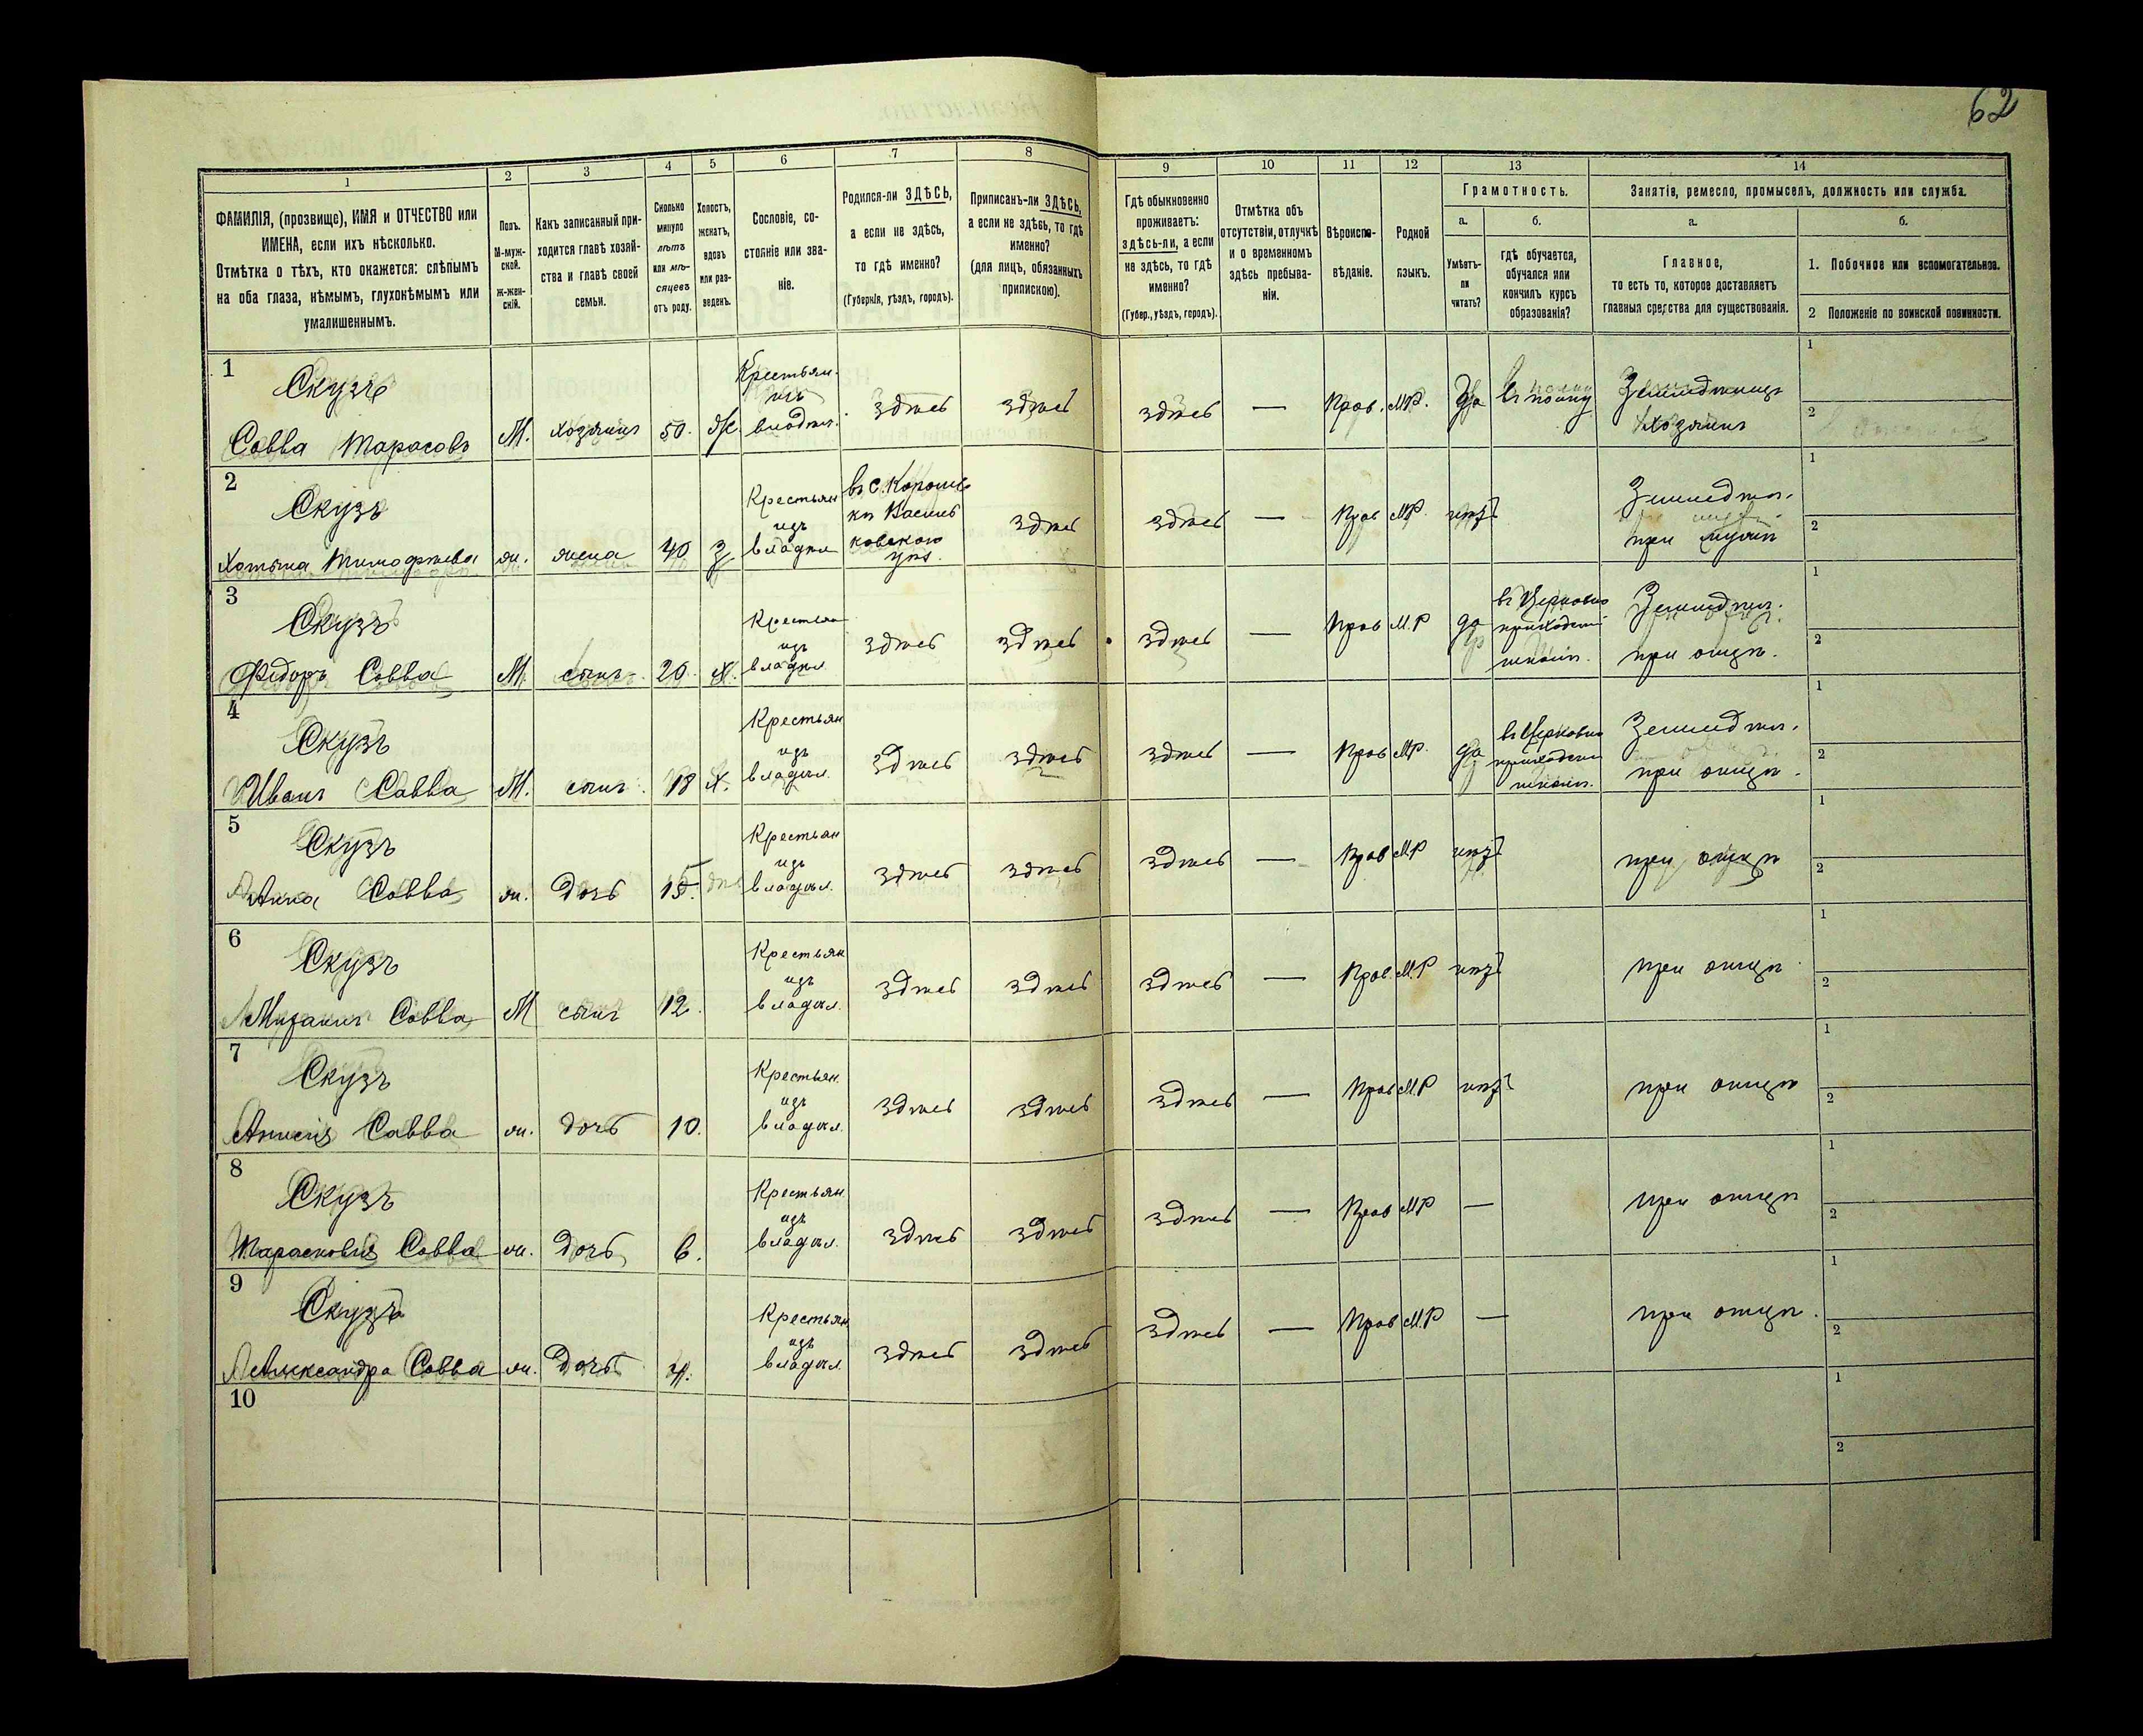 62
1 2 3 4 5 6 7 8 9 10 11 12 13 14
ФАМИЛІЯ, (прозвище), ИМЯ и ОТЧЕСТВО или
ИМЕНА, если ихъ нѣсколько.
Отмѣтка о тѣхъ, кто окажется: слѣпымъ
на оба глаза, нѣмымъ, глухонѣмымъ или
умалишеннымъ.
Полъ.
М-муж-
ской.
ж-жен-
скій.
Какъ записанный при-
ходится главѣ хозяй-
ства и главѣ своей
семьи.
Сколько
минуло
лѣтъ
или мѣ-
сяцевъ
отъ роду.
Холостъ,
женатъ,
вдовъ
или раз-
веденъ.
Сословіе, со-
стояніе или зва-
ніе.
Родился-ли ЗДѢСЬ,
а если не здѣсь,
то гдѣ именно?
(Губернія, уѣздъ, городъ).
Приписанъ-ли ЗДѢСЬ,
а если не здѣсь, то гдѣ
именно?
(для лицъ, обязанныхъ
припискою).
Гдѣ обыкновенно
проживаетъ:
здѣсь-ли, а если
не здѣсь, то гдѣ
именно?
(Губер., уѣздъ, городъ).
Отмѣтка объ
отсутствіи, отлучкѣ
и о временномъ
здѣсь пребыва-
ніи.
Вѣроиспо-
вѣданіе.
Родной
языкъ.
Грамотность.
а. б.
Умѣетъ-
ли
читать?
гдѣ обучается,
обучался или
кончилъ курсъ
образованія?
Занятіе, ремесло, промыселъ, должность или служба.
а. б.
Главное,
то есть то, которое доставляетъ
главныя средства для существованія.
1. Побочное или вспомогательное.
2 Положеніе по воинской повинности.
1
Скузъ
Савва Тарасовъ М. хозяинъ 50. Ж.
Крестьян.
изъ
владѣл.
здѣсь здѣсь здѣсь — Прав. М.Р. Да
въ полку
Земледѣлецъ
хозяинъ
1
2
2
Скузъ
Хотына Тимофѣева ж. жена 40 З
Крестьян
изъ
владѣл
въ с.
ковского
уѣз.
здѣсь здѣсь — Прав М.Р. нѣтъ
Земледѣл.
при мужѣ
1
2
3
Скузъ
Ѳедоръ Савва М. сынъ 20. Х.
Крестьян
изъ
владѣл
здѣсь здѣсь здѣсь — Прав М.Р да
въ Церковно
приходской
школѣ.
Земледѣл.
при отцѣ.
1
2
4
Скузъ
Иванъ Савва М. сынъ 18 Х.
Крестьян
изъ
владѣл.
здѣсь здѣсь здѣсь — Прав М.Р. да
въ Церковно
приходской
школѣ.
Земледѣл.
при отцѣ.
1
2
5
Скузъ
Анна Савва ж. дочь 15.
Крестьян
изъ
владѣл.
здѣсь здѣсь здѣсь — Прав М.Р нѣтъ
при отцѣ
1
2
6
Скузъ
Савва М сынъ 12.
Крестьян
изъ
владѣл.
здѣсь здѣсь здѣсь — Прав. М.Р нѣтъ
при отцѣ
1
2
7
Скузъ
Савва ж. дочь 10.
Крестьян.
изъ
владѣл.
здѣсь здѣсь здѣсь — Прав М.Р нѣтъ
при отцѣ
1
2
8
Скузъ
Парасковія Савва ж. дочь 6.
Крестьян.
изъ
владѣл.
здѣсь здѣсь здѣсь — Прав М.Р —
при отцѣ
1
2
9
Скузъ
Александра Савва ж. дочь 4.
Крестьян
изъ
владѣл.
здѣсь здѣсь здѣсь — Прав М.Р —
при отцѣ.
1
2
10
1
2